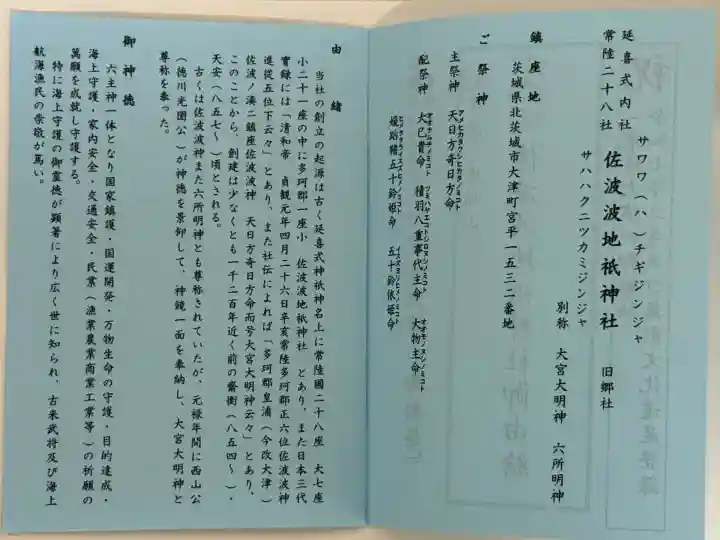 延喜式内社
常陸二十八社
サワワ(ハ)チギジンジャ
佐波波地祇神社 旧郷社
サハハクニツカミジンジャ
別称 大宮大明神 六所明神
鎮座地
茨城県北茨城市大津町宮平一五三二番地
ご祭神
主祭神 天日方奇日方命
アメヒカタクシヒカタノミコト
配祭神 大己貴命 積羽八重事代主命 大物主命
オオナムチノミコト ツミハヤエコトシロヌシノミコト オオモノヌシノミコト
媛蹈鞴五十鈴姫命 五十鈴依姫命
ヒメタタライスズヒメノミコト イスズヨリヒメノミコト
由緒
当社の創立の起源は古く延喜式神祇神名上に常陸國二十八座 大七座
小二十一座の中に多珂郡一座小 佐波波地祇神社 とあり、また日本三代
實録には「清和帝 貞観元年四月二十六日辛亥常陸多珂郡正六位佐波波神
進従五位下云々」とあり、また社伝によれば「多珂郡皇浦(今改大津)
佐波ノ湊二鎮座佐波波神 天日方奇日方命而号大宮大明神云々」とあり、
このことから、創建は少なくとも一千二百年近く前の齋衡(八五四~)・
天安(八五七~)頃とされる。
古くは佐波波神また六所明神とも尊称されていたが、元禄年間に西山公
(徳川光圀公)が神徳を景仰して、神鏡一面を奉納し、大宮大明神と
尊称を奉った。
御神徳
六主神一体となり国家鎮護・国運開発・万物生命の守護・目的達成・
海上守護・家内安全・交通安全・民業(漁業農業商業工業等)の祈願の
萬願を成就し守護する。
特に海上守護の御霊徳が顕著により広く世に知られ、古来武将及び海上
航海漁民の崇敬が篤い。